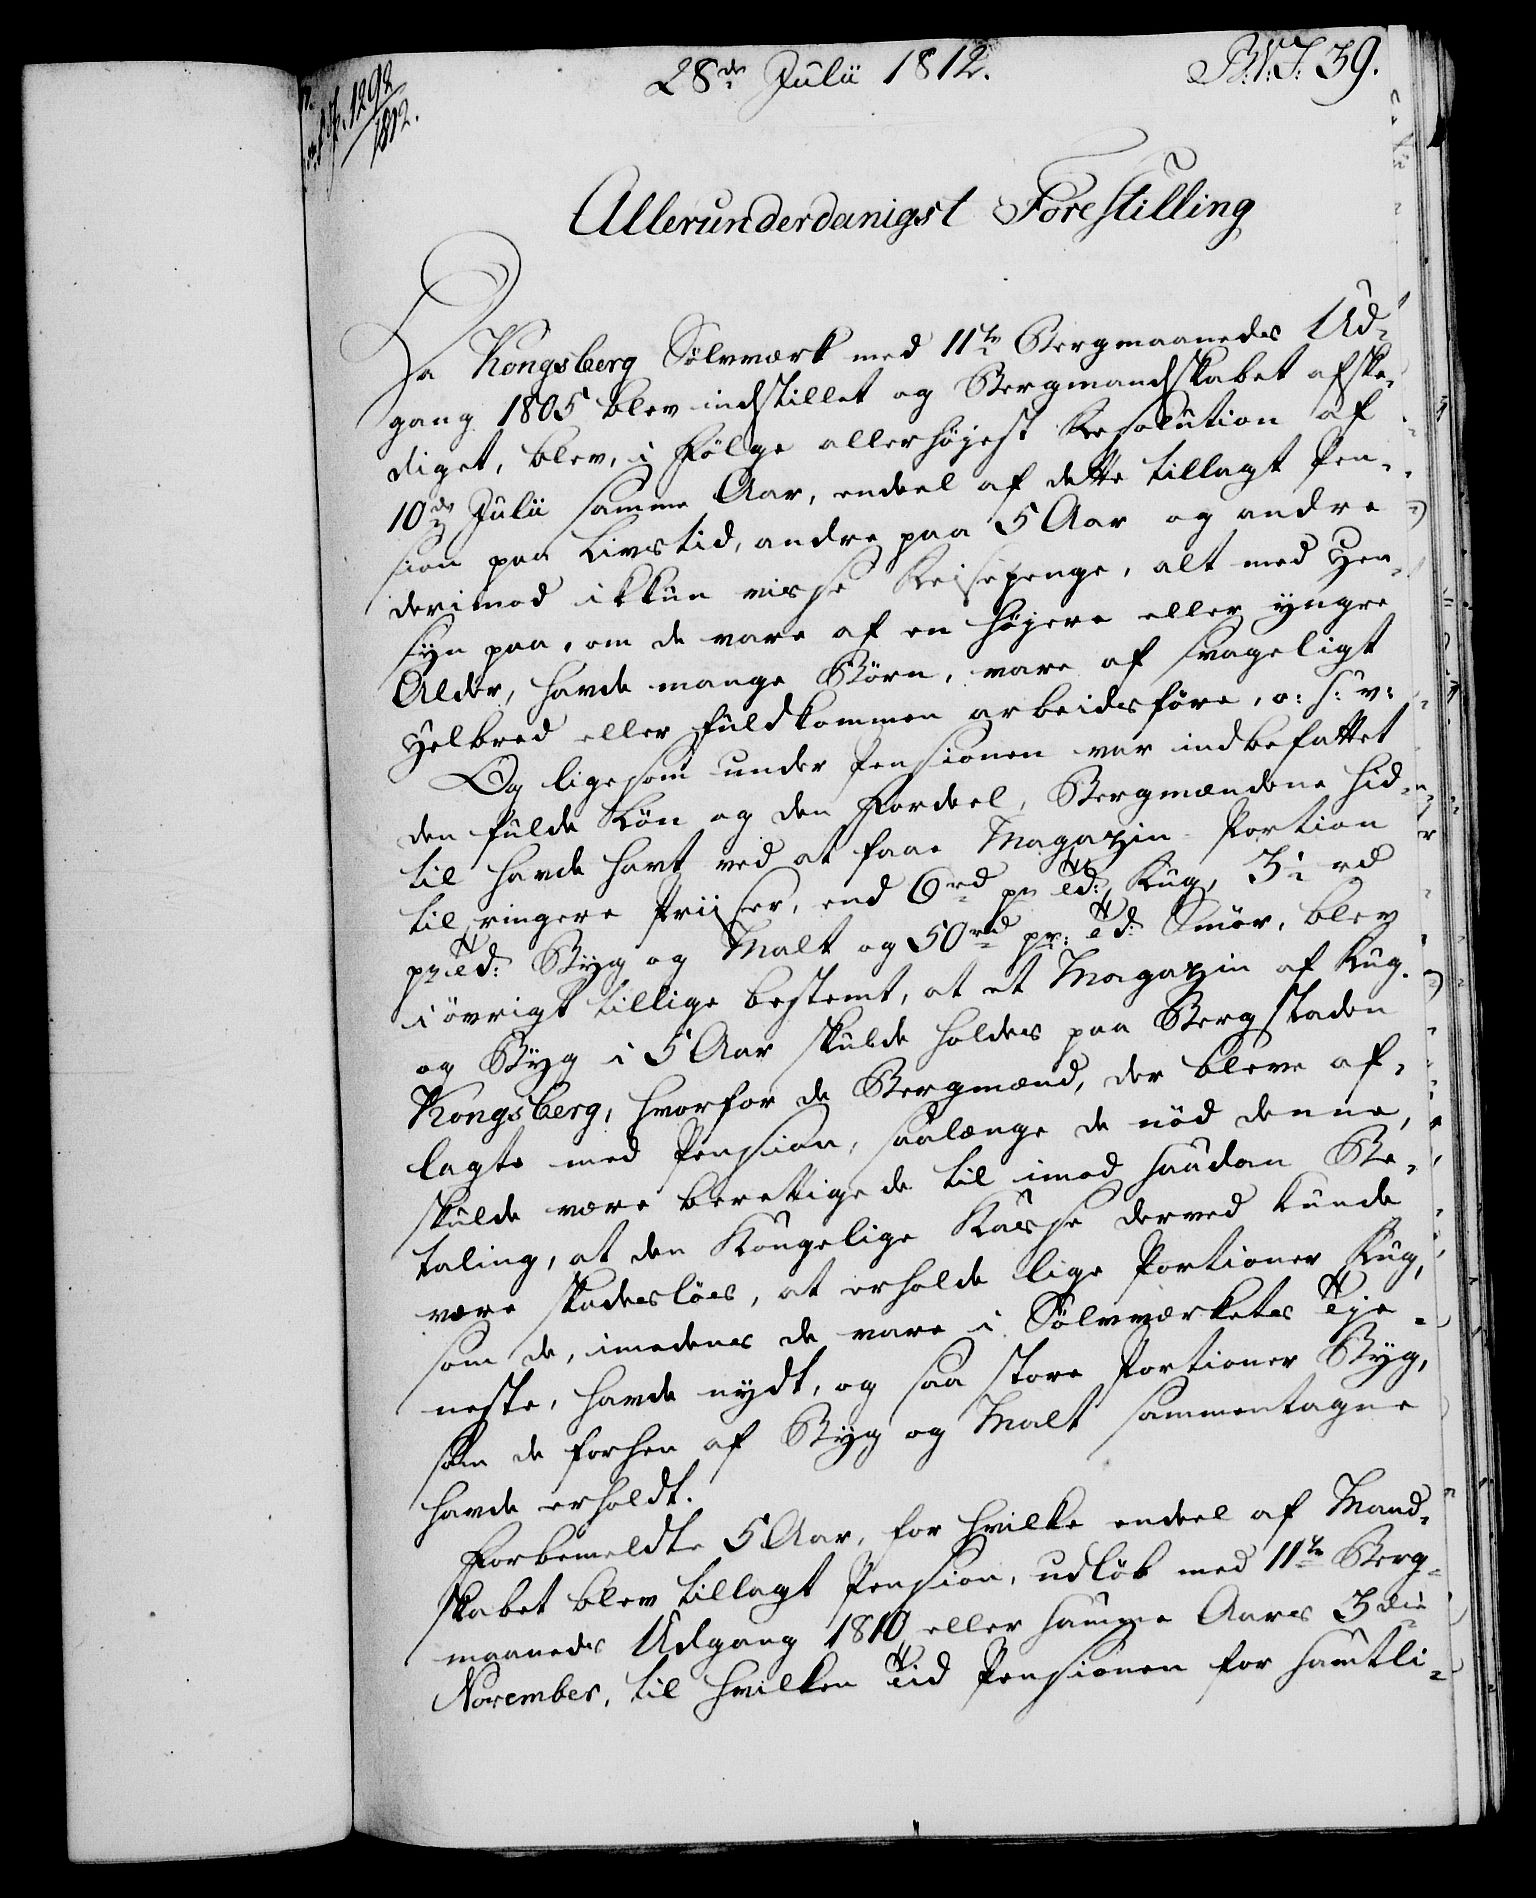 28de Julii 1812.
B: V: J: 39.
1292
1812.
Allerunderdanigst Forestilling
Da Kongsberg Sølvværk med 11te Bergmaaneds Ud-
gang 1805 blev indstillet og Bergmandskabet afske-
diget, blev, i Følge allerhøjest Resolution af
10de Julii samme Aar, endeel af dette tillagt Pen-
sion paa Livstid, andre paa 5 Aar og andre
derimod ikkun visse Reisepenge, alt med Hen-
syn paa, om de vare af en højere eller yngre
Alder, havde mange Børn, vare af svageligt
Helbred eller fuldkommen arbeidsføre, o: s: v:
Og ligesom under Pensionen var indbefattet
den fulde Løn og den Fordeel, Bergmændene hid-
til havde havt ved at faae Magazin-Portion
til ringere Priiser, end 6rd pr Td: Rug, 3½ rd
pr Td: Byg og Malt og 50rd pr: Td: Smör, blev
i øvrigt tillige bestemt, at et Magazin af Rug
og Byg i 5 Aar skulde holdes paa Bergstaden
Kongsberg, hvorfor de Bergmænd, der bleve af-
lagte med Pension, saalænge de nød denne,
skulde være berettigede til imod saadan Be-
taling, at den Kongelige Kasse derved kunde
være skadesløs, at erholde lige Portioner Rug,
som de, imedens de vare i Sølvværkets Tje-
neste, havde nydt, og saa store Portioner Byg,
som de forhen af Byg og Malt sammentagne
havde erholdt.
Forbemeldte 5 Aar, for hvilke endeel af Mand-
skabet blev tillagt Pension, udløb med 11te Berg-
maaneds Udgang 1810 eller samme Aars 3die
November, til hvilken Tid Pensionen for samtli-